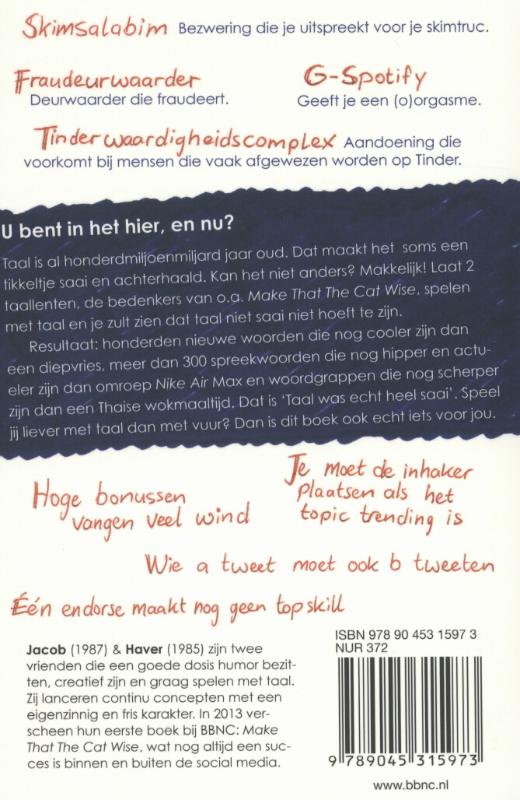 Skimsalabim Bezwering die je uitspreekt voor je skimtruc.
Fraudeurwaarder
Deurwaarder die fraudeert.
G-Spotify
Geeft je een (o)orgasme.
Tinderwaardigheidscomplex Aandoening die
voorkomt bij mensen die vaak afgewezen worden op Tinder.
U bent in het hier, en nu?
Taal is al honderdmiljoenmiljard jaar oud. Dat maakt het soms een
tikkeltje saai en achterhaald. Kan het niet anders? Makkelijk! Laat 2
taallenten, de bedenkers van o.a. Make That The Cat Wise, spelen
met taal en je zult zien dat taal niet saai niet hoeft te zijn.
Resultaat: honderden nieuwe woorden die nog cooler zijn dan
een diepvries, meer dan 300 spreekwoorden die nog hipper en actu-
eler zijn dan omroep Nike Air Max en woordgrappen die nog scherper
zijn dan een Thaise wokmaaltijd. Dat is 'Taal was echt heel saai'. Speel
jij liever met taal dan met vuur? Dan is dit boek ook echt iets voor jou.
Hoge bonussen
vangen veel wind
Je moet de inhaker
plaatsen als het
topic trending is
Wie a tweet moet ook b tweeten
Één endorse maakt nog geen topskill
Jacob (1987) & Haver (1985) zijn twee
vrienden die een goede dosis humor bezit-
ten, creatief zijn en graag spelen met taal.
Zij lanceren continu concepten met een
eigenzinnig en fris karakter. In 2013 ver-
scheen hun eerste boek bij BBNC: Make
That The Cat Wise, wat nog altijd een suc-
ces is binnen en buiten de social media.
ISBN 978 90 453 1597 3
NUR 372
9 789045 315973
www.bbnc.nl